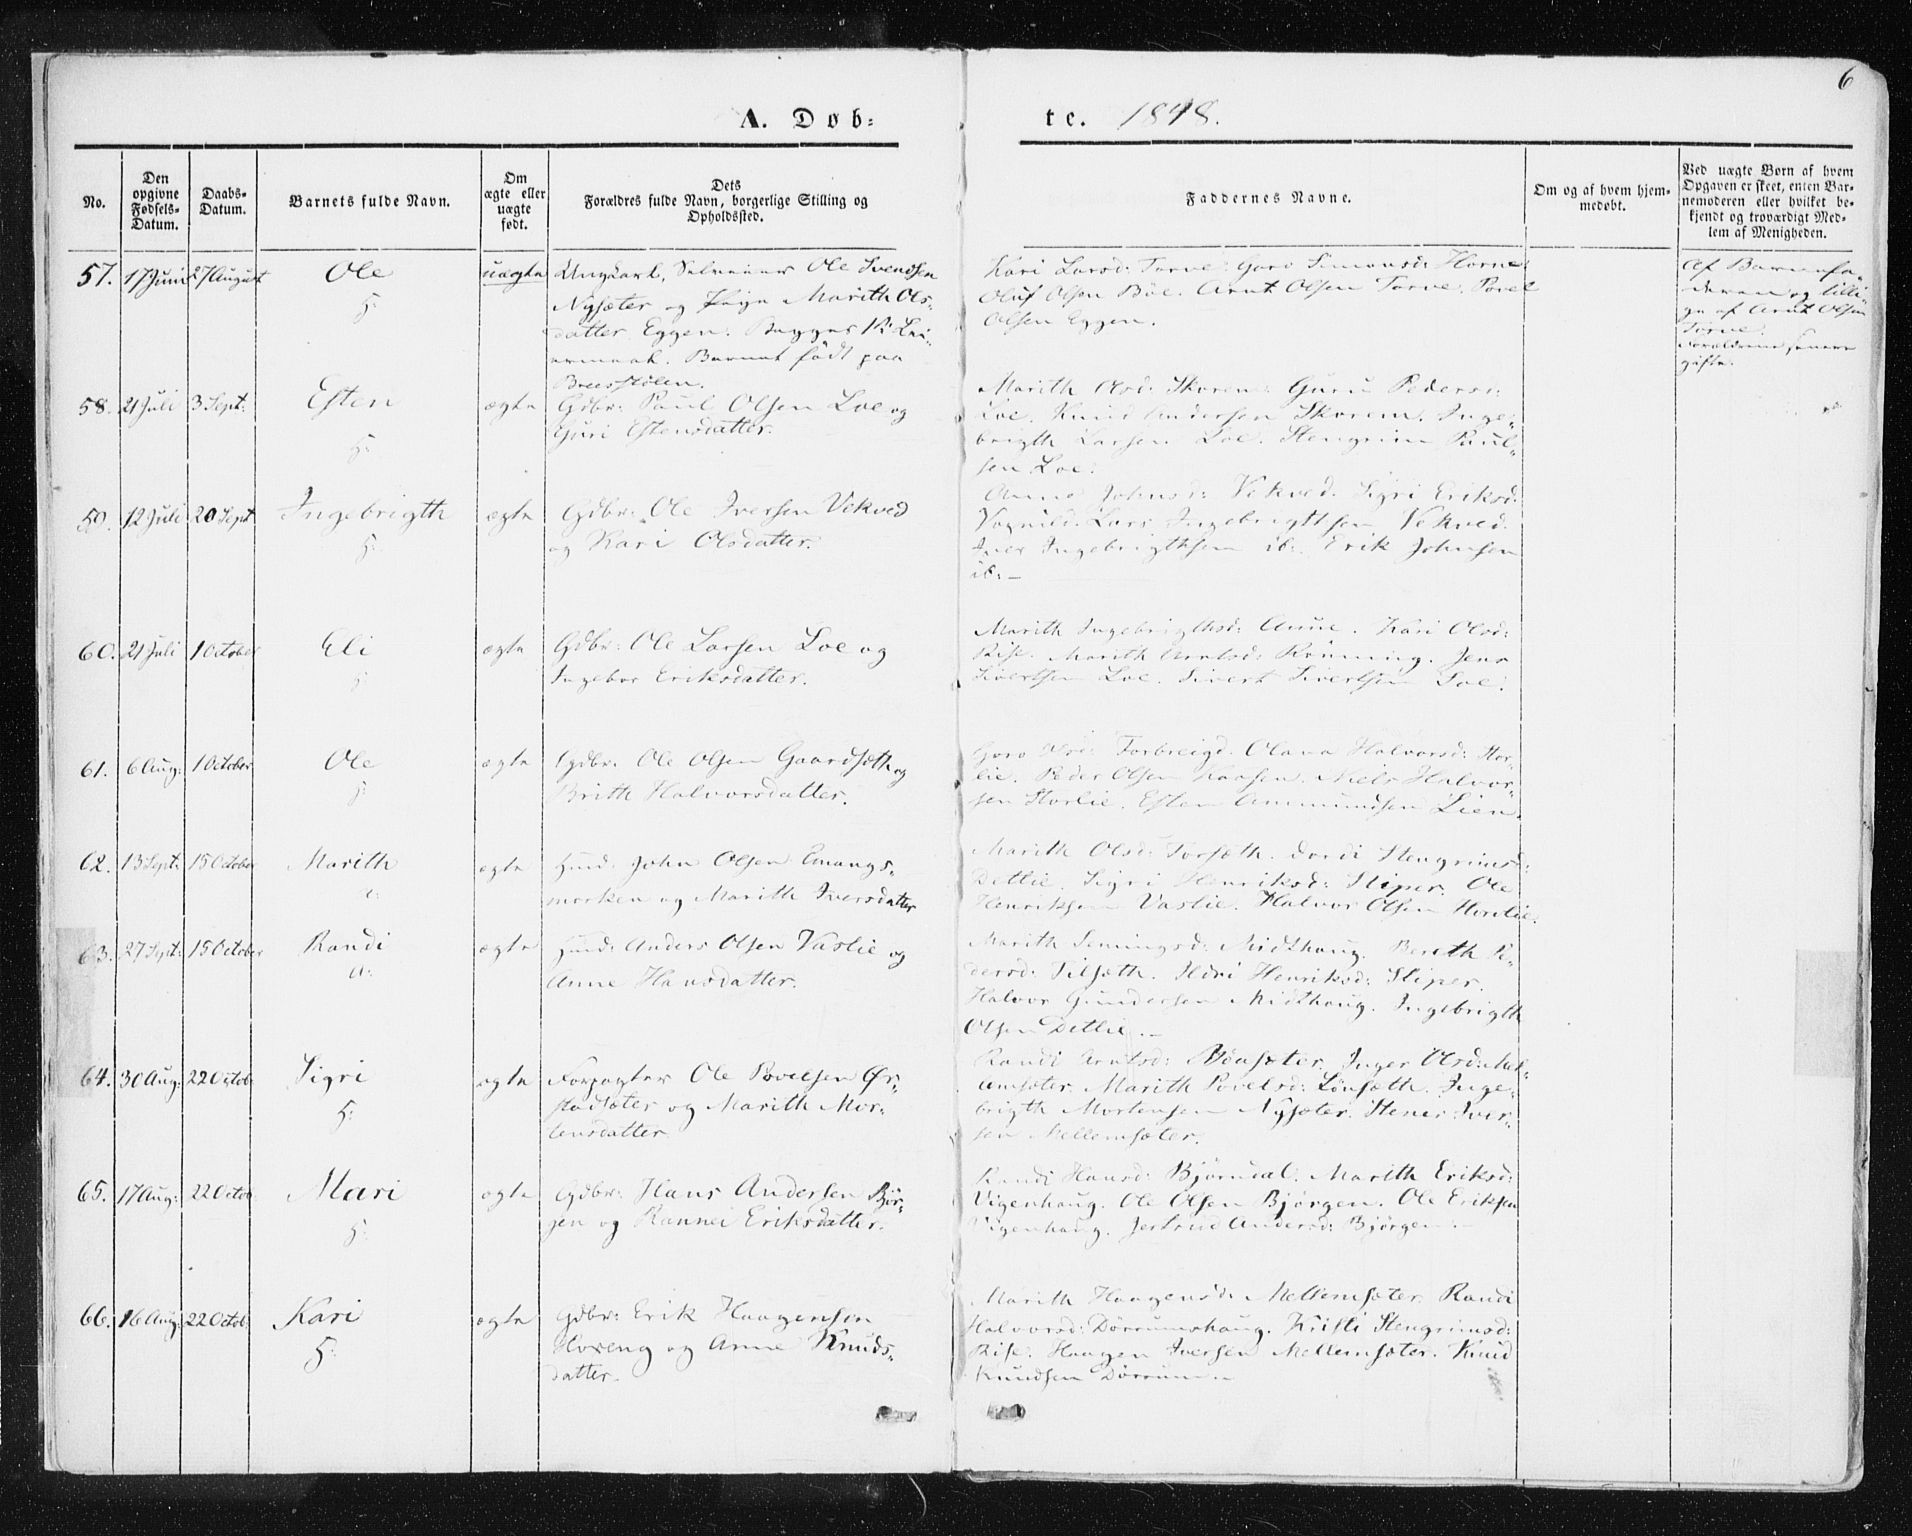 6
A. Døb= te. 1848.
No.
Den opgivne Fødsels-Datum.
Daabs-Datum.
Barnets fulde Navn.
Om ægte eller uægte født.
Dets Forældres fulde Navn, borgerlige Stilling og Opholdssted.
Faddernes Navne.
Om og af hvem hjem-medøbt.
Ved uægte Børn af hvem Opgaven er skeet, enten Bar-nemoderen eller hvilket be-kjendt og troværdigt Med-lem af Menigheden.
57. 17 Juni 27 August Ole uægte Ungkarl, Ole Svendsen
Nysæter og Pige Marith Ols-
datter Eggen. Begges
Barnet født paa
H:
Kari Larsd: Torve. Goro Simonsd: Horne
Oluf Olsen Böe. Arnt Olsen Torve. Povel
Olsen Eggen.
Af Barnefa-
deren og tilli-
ge af Arnt Olsen
Torve.
Forældrene senere
gifte.
58. 21 Juli 3 Sept: Esten ægte Gdbr: Paul Olsen Loe og
Guri Estensdatter.
H:
Marith Olsd: Skorem. Guru Pedersd:
Loe. Knud Andersen Skorem. Inge-
brigth Larsen Loe. Stengrim Paul-
sen Loe.
59. 12 Juli 20 Sept Ingebrigth ægte Gdbr: Ole Iversen Vekved
og Kari Olsdatter.
H:
Anne Johnsd: Vekved. Sigri Eriksd:
Vognild. Lars Ingebrigtsen Vekved.
Iver Ingebrigthsen ib: Erik Johnsen
ib:-
60. 21 Juli 1 October Eli ægte Gdbr: Ole Larsen Loe og
Ingebor Eriksdatter.
H:
Marith Ingebrigthsd: Aune. Kari Olsd:
Rise. Marith Arntsd: Rönning. Jens
Sivertsen Loe. Sivert Sivertsen Loe.
61. 6 Aug: 1 October Ole ægte Gdbr: Ole Olsen Gaardsæth og
Brith Halvorsdatter.
H:
Goro Torbreigd. Olava Halvorsd: Stor-
lie. Peder Olsen Kaasen. Niels Halvor-
sen Storlie. Esten Ammundsen Lien.
62. 13 Sept: 15 October Marith ægte Huusm: John Olsen Emangs-
morken og Marith Iversdatter
Marith Olsd: Torsæth. Dordi Stengrimsd:
Detlie. Sigri Henriksd: Stiper. Ole
Henriksen Vaslie. Halvor Olsen
63. 27 Sept: 15 October Randi ægte Huusm: Anders Olsen Vaslie og
Anne Hansdatter.
Marith Semingsd: Midthaug. Bereth Pe-
dersd: Tilsæth. Henriksd: Stiper.
Halvor Gundersen Midthaug. Ingebrigth
Olsen Detlie.-
64. 30 Aug: 22 Octob. Sigri ægte Forpagter Ole Povelsen Ör-
stadsæter og Marith Mor-
tensdatter.
H:
Randi Arntsd: Inger Olsd:
Marith Povelsd: Lönsæth. Inge-
brigth Mortensen Nysæter. Stener Iver-
sen Mellemsæter.
65. 17 Aug: 22 Octob. Mari ægte Gdbr: Hans Andersen Björ-
gen og Rannei Eriksdatter.
H:
Randi Hansd: Björndal. Marith Eriksd:
Vigenhaug. Ole Olsen Bjørgen. Ole Eriksen
Vigenhaug. Jertrud Andersd: Bjørgen.-
66. 16 Aug: 22 Octob. Kari ægte Gdbr: Erik Haagensen
Horeng og Anne Knuds-
datter.
H:
Marith Haagensd: Mellemsæter. Randi
Halvorsd: Dörrumshaug. Kristi Stengrimsd:
Rise. Haagen Iversen Mellemsæter. Knud
Knudsen Dörrum.-